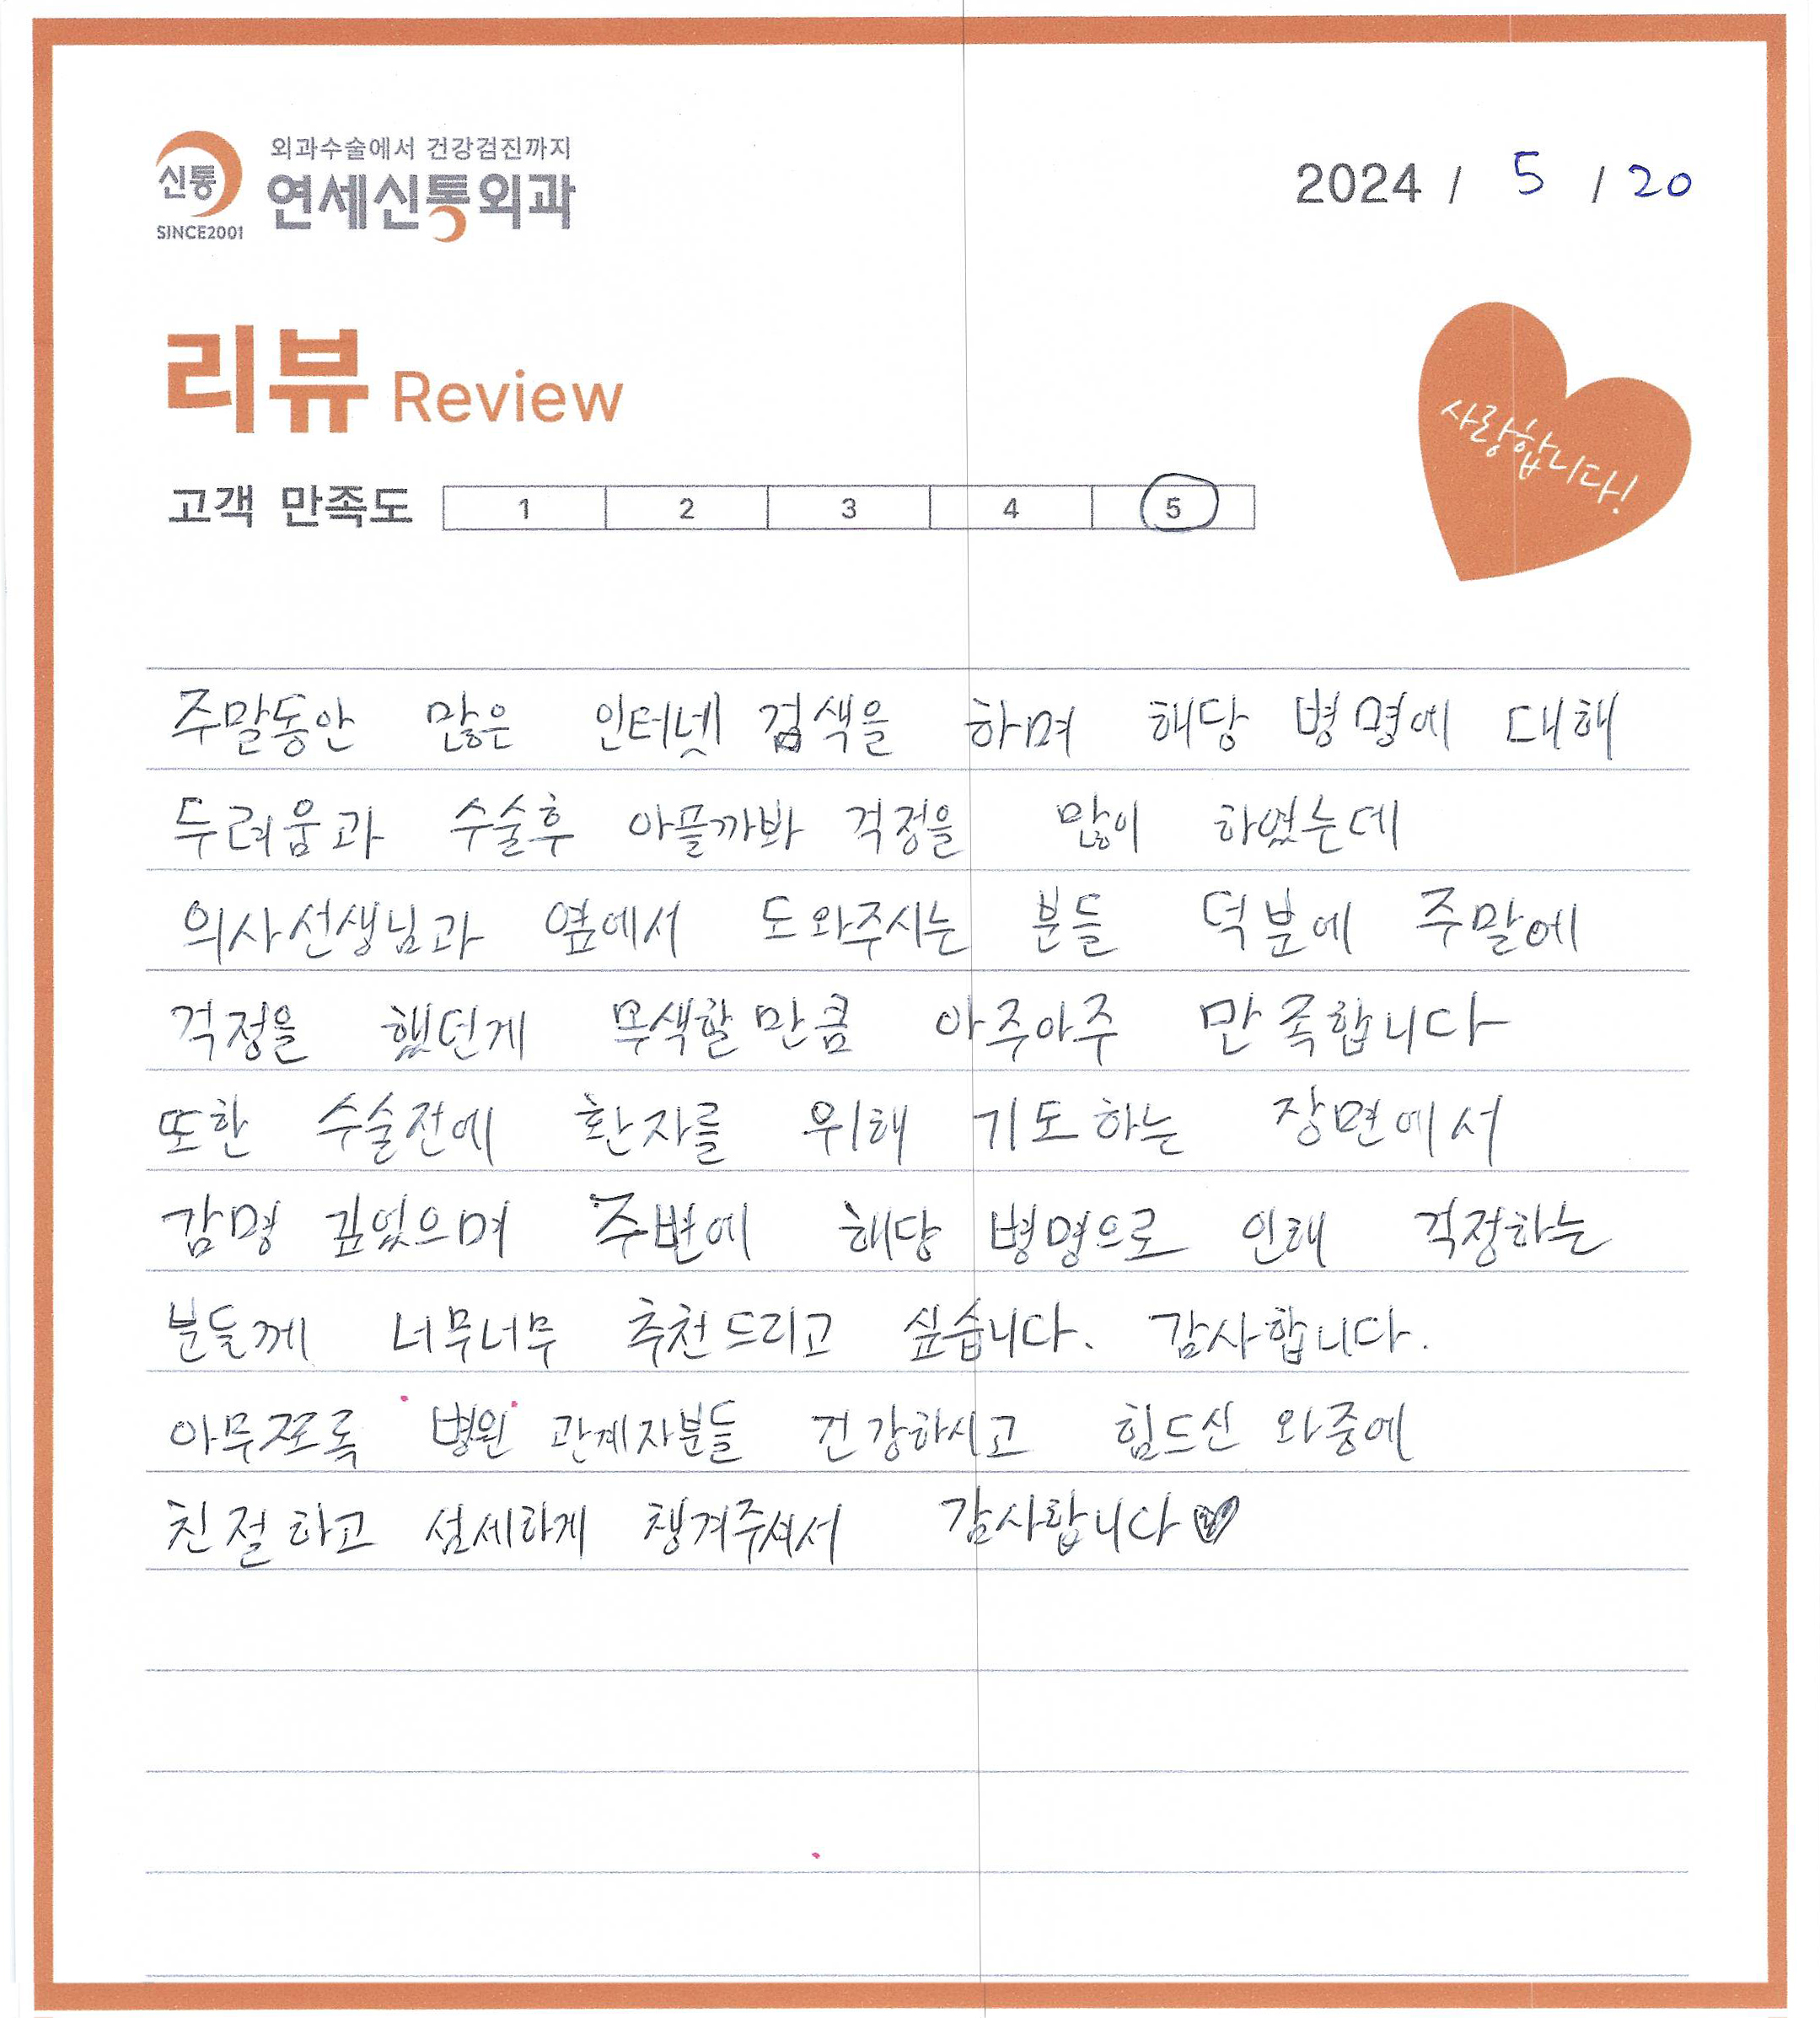 외과수술에서 건강검진까지
신통 연세신통외과
SINCE2001
2024 / 5 / 20
리뷰 Review
사랑합니다!
고객 만족도 1 2 3 4 5
주말동안 많은 인터넷 검색을 하며 해당 병명에 대해
두려움과 수술후 아플까봐 걱정을 많이 하였는데
의사선생님과 옆에서 도와주시는 분들 덕분에 주말에
걱정을 했던게 무색할만큼 아주아주 만족합니다
또한 수술전에 환자를 위해 기도하는 장면에서
감명 깊었으며 주변에 해당 병명으로 인해 걱정하는
분들께 너무너무 추천드리고 싶습니다. 감사합니다.
아무쪼록 병원 관계자분들 건강하시고 힘드신 와중에
친절하고 섬세하게 챙겨주셔서 감사합니다♡